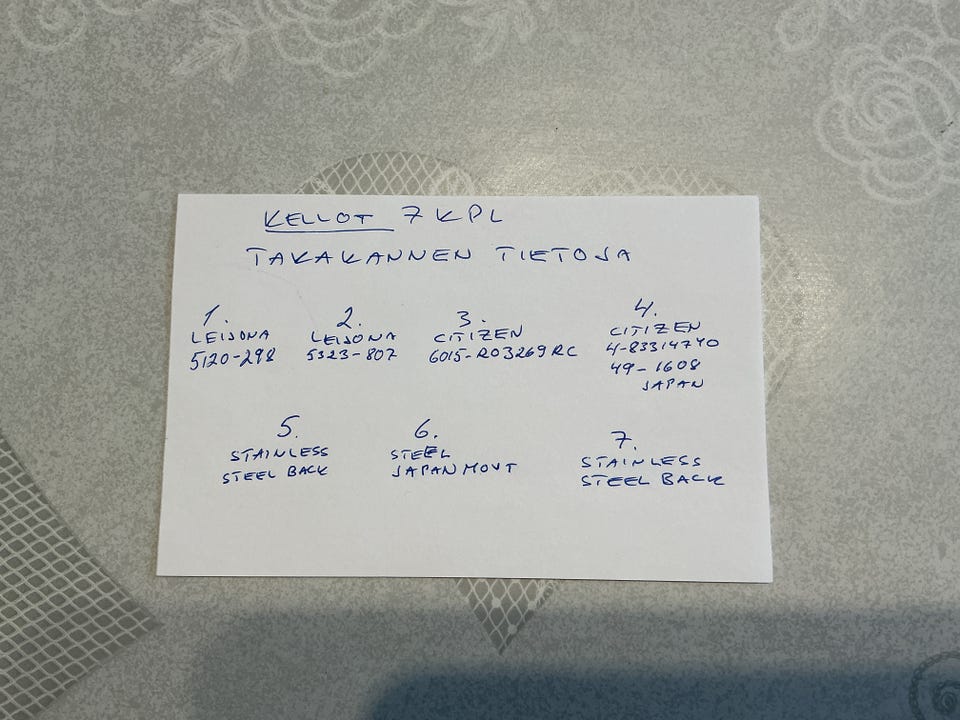 KELLOT 7 KPL
TAKAKANNEN TIETOJA
1.
LEIJONA
5120-298
2.
LEIJONA
5323-807
3.
CITIZEN
6015-R03269 RC
4.
CITIZEN
4-83314740
49-1608
JAPAN
5.
STAINLESS
STEEL BACK
6.
STEEL
JAPAN MOVT
7.
STAINLESS
STEEL BACK